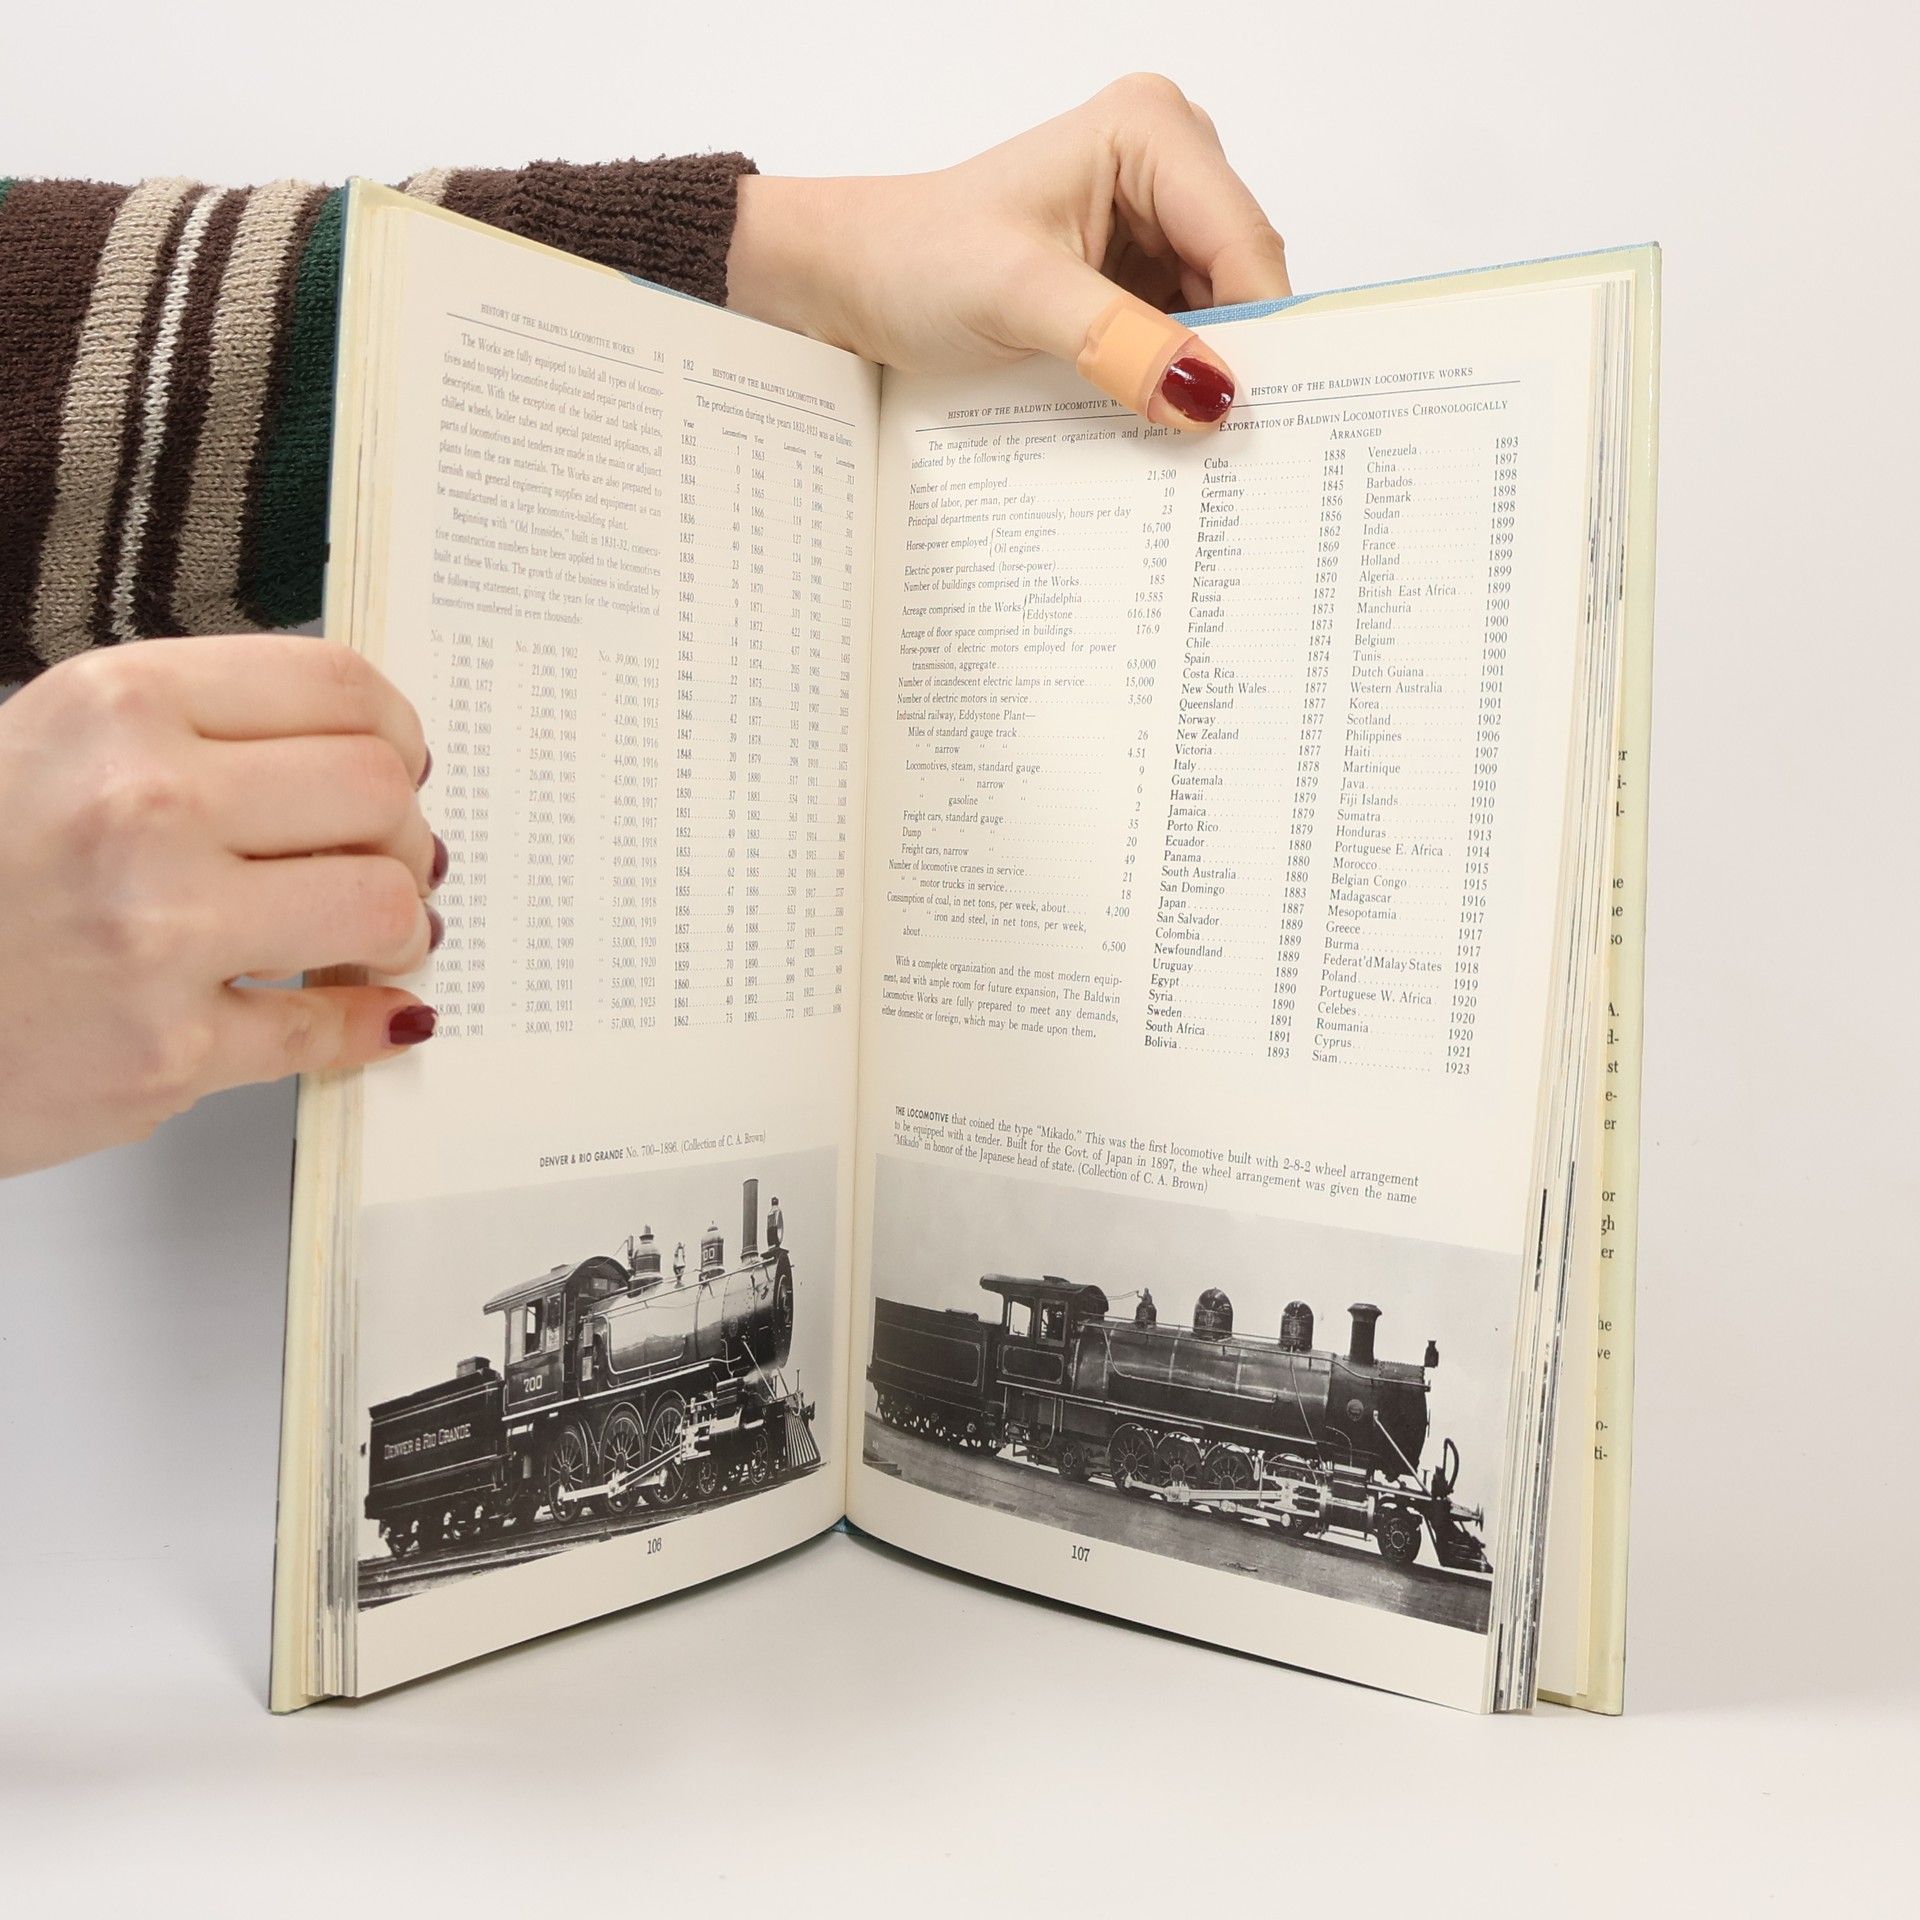 HISTORY OF THE BALDWIN LOCOMOTIVE WORKS 181
The Works are fully equipped to build all types of locomo-
tives and to supply locomotive duplicate and repair parts of every
description. With the exception of the boiler and tank plates,
chilled wheels, boiler tubes and special patented appliances, all
parts of locomotives and tenders are made in the main or adjunct
plants from the raw materials. The Works are also prepared to
furnish such general engineering supplies and equipment as can
be manufactured in a large locomotive-building plant.
Beginning with "Old Ironsides," built in 1831-32, consecu-
tive construction numbers have been applied to the locomotives
built at these Works. The growth of the business is indicated by
the following statement, giving the years for the completion of
locomotives numbered in even thousands:
No. 1,000, 1861 No. 20,000, 1902 No. 39,000, 1912
" 2,000, 1869 " 21,000, 1902 " 40,000, 1913
" 3,000, 1872 " 22,000, 1903 " 41,000, 1913
" 4,000, 1876 " 23,000, 1903 " 42,000, 1915
5,000, 1880 " 24,000, 1904 " 43,000, 1916
6,000, 1882 " 25,000, 1905 " 44,000, 1916
7,000, 1883 " 26,000, 1905 " 45,000, 1917
8,000, 1886 " 27,000, 1905 " 46,000, 1917
9,000, 1888 " 28,000, 1906 " 47,000, 1917
10,000, 1889 " 29,000, 1906 " 48,000, 1918
000, 1890 " 30,000, 1907 " 49,000, 1918
000, 1891 " 31,000, 1907 " 50,000, 1918
13,000, 1892 " 32,000, 1907 " 51,000, 1918
000, 1894 " 33,000, 1908 " 52,000, 1919
5,000, 1896 " 34,000, 1909 " 53,000, 1920
16,000, 1898 " 35,000, 1910 " 54,000, 1920
" 17,000, 1899 " 36,000, 1911 " 55,000, 1921
18,000, 1900 " 37,000, 1911 " 56,000, 1923
19,000, 1901 " 38,000, 1912 " 57,000, 1923
182 HISTORY OF THE BALDWIN LOCOMOTIVE WORKS
The production during the years 1832-1923 was as follows:
Year Locomotives Year Locomotives Year Locomotives
1832 1 1863 96 1894 313
1833 0 1864 130 1895 401
1834 5 1865 115 1896 547
1835 14 1866 118 1897 501
1836 40 1867 127 1898 755
1837 40 1868 124 1899 901
1838 23 1869 235 1900 1217
1839 26 1870 280 1901 1375
1840 9 1871 331 1902 1533
1841 8 1872 422 1903 2022
1842 14 1873 437 1904 1485
1843 12 1874 205 1905 2250
1844 22 1875 130 1906 2666
1845 27 1876 232 1907 2655
1846 42 1877 185 1908 617
1847 39 1878 292 1909 1024
1848 20 1879 298 1910 1675
1849 30 1880 517 1911 1606
1850 37 1881 554 1912 1618
1851 50 1882 563 1913 2061
1852 49 1883 557 1914 804
1853 60 1884 429 1915 867
1854 62 1885 242 1916 1989
1855 47 1886 550 1917 2737
1856 59 1887 653 1918 3580
1857 66 1888 737 1919 1722
1858 33 1889 827 1920 1534
1859 70 1890 946 1921
1860 83 1891 899 1922
1861 40 1892 731 1923 1696
1862 75 1893 772
DENVER & RIO GRANDE No. 700—1896. (Collection of C. A. Brown)
700
700
DENVER & RIO GRANDE
106
HISTORY OF THE BALDWIN LOCOMOTIVE
The magnitude of the present organization and plant is
indicated by the following figures:
Number of men employed 21,500
Hours of labor, per man, per day 10
Principal departments run continuously, hours per day 23
Horse-power employed { Steam engines 16,700
Oil engines 3,400
Electric power purchased (horse-power) 9,500
Number of buildings comprised in the Works 185
Acreage comprised in the Works { Philadelphia 19.585
Eddystone 616.186
Acreage of floor space comprised in buildings 176.9
Horse-power of electric motors employed for power
transmission, aggregate 63,000
Number of incandescent electric lamps in service 15,000
Number of electric motors in service 3,560
Industrial railway, Eddystone Plant—
Miles of standard gauge track 26
" " narrow " " 4.51
Locomotives, steam, standard gauge 9
" " narrow " 6
" gasoline " " 2
Freight cars, standard gauge 35
Dump " " " 20
Freight cars, narrow " 49
Number of locomotive cranes in service 21
" " motor trucks in service 18
Consumption of coal, in net tons, per week, about 4,200
" " iron and steel, in net tons, per week,
about 6,500
With a complete organization and the most modern equip-
ment, and with ample room for future expansion, The Baldwin
Locomotive Works are fully prepared to meet any demands,
either domestic or foreign, which may be made upon them.
HISTORY OF THE BALDWIN LOCOMOTIVE WORKS
EXPORTATION OF BALDWIN LOCOMOTIVES CHRONOLOGICALLY
ARRANGED
Cuba 1838 Venezuela 1893
Austria 1841 China 1897
Germany 1845 Barbados 1898
Mexico 1856 Denmark 1898
Trinidad 1856 Soudan 1898
Brazil 1862 India 1899
Argentina 1869 France 1899
Peru 1869 Holland 1899
Nicaragua 1870 Algeria 1899
Russia 1872 British East Africa 1899
Canada 1873 Manchuria 1900
Finland 1873 Ireland 1900
Chile 1874 Belgium 1900
Spain 1874 Tunis 1900
Costa Rica 1875 Dutch Guiana 1901
New South Wales 1877 Western Australia 1901
Queensland 1877 Korea 1901
Norway 1877 Scotland 1902
New Zealand 1877 Philippines 1906
Victoria 1877 Haiti 1907
Italy 1878 Martinique 1909
Guatemala 1879 Java 1910
Hawaii 1879 Fiji Islands 1910
Jamaica 1879 Sumatra 1910
Porto Rico 1879 Honduras 1913
Ecuador 1880 Portuguese E. Africa 1914
Panama 1880 Morocco 1915
South Australia 1880 Belgian Congo 1915
San Domingo 1883 Madagascar 1916
Japan 1887 Mesopotamia 1917
San Salvador 1889 Greece 1917
Colombia 1889 Burma 1917
Newfoundland 1889 Federat'd Malay States 1918
Uruguay 1889 Poland 1919
Egypt 1890 Portuguese W. Africa 1920
Syria 1890 Celebes 1920
Sweden 1891 Roumania 1920
South Africa 1891 Cyprus 1921
Bolivia 1893 Siam 1923
THE LOCOMOTIVE that coined the type "Mikado." This was the first locomotive built with 2-8-2 wheel arrangement
to be equipped with a tender. Built for the Govt. of Japan in 1897, the wheel arrangement was given the name
"Mikado" in honor of the Japanese head of state. (Collection of C. A. Brown)
107